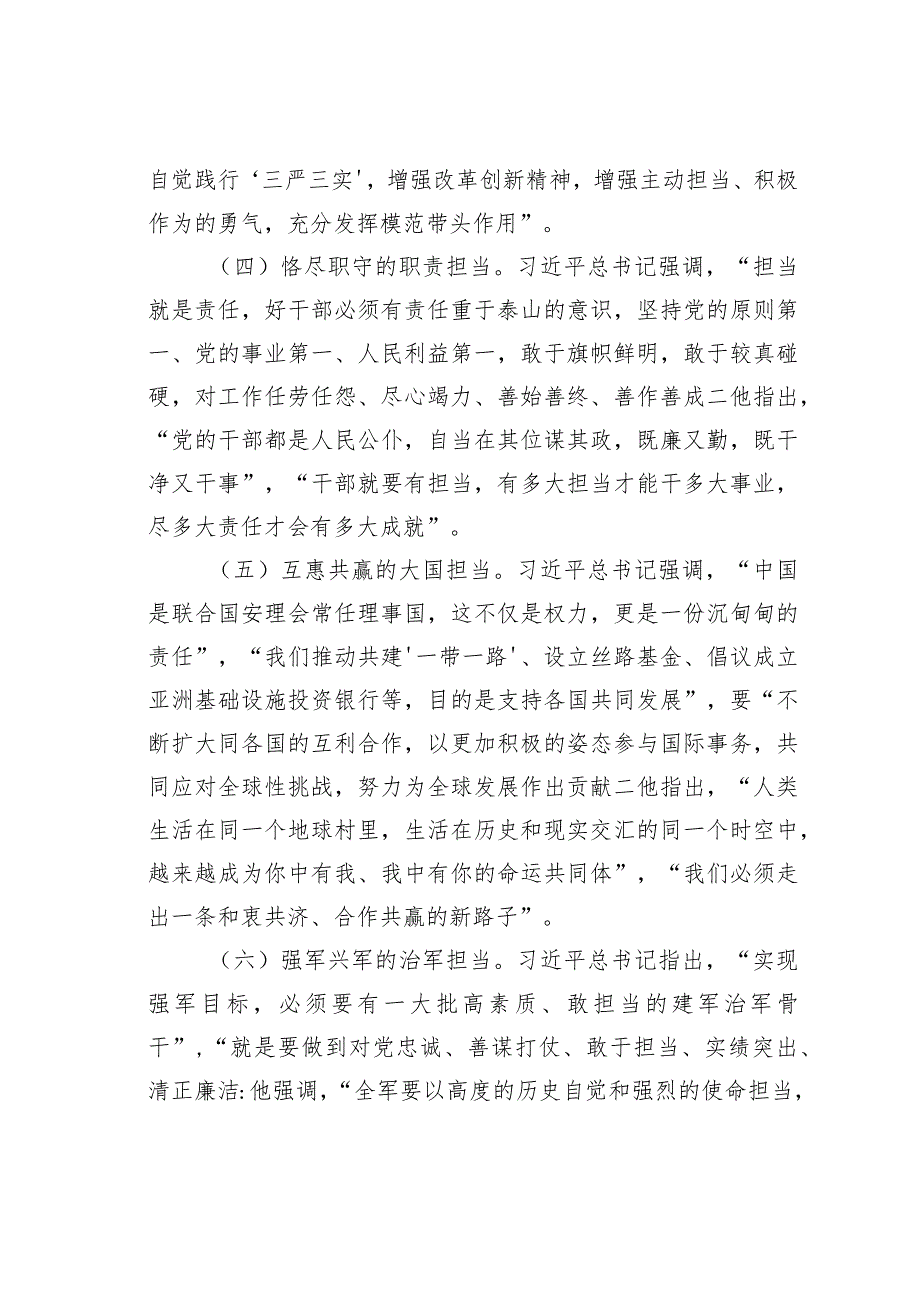 自觉践行‘三严三实'，增强改革创新精神，增强主动担当、积极
作为的勇气，充分发挥模范带头作用”。
（四）恪尽职守的职责担当。习近平总书记强调，“担当
就是责任，好干部必须有责任重于泰山的意识，坚持党的原则第
一、党的事业第一、人民利益第一，敢于旗帜鲜明，敢于较真碰
硬，对工作任劳任怨、尽心竭力、善始善终、善作善成二他指出，
“党的干部都是人民公仆，自当在其位谋其政，既廉又勤，既干
净又干事”，“干部就要有担当，有多大担当才能干多大事业，
尽多大责任才会有多大成就”。
（五）互惠共赢的大国担当。习近平总书记强调，“中国
是联合国安理会常任理事国，这不仅是权力，更是一份沉甸甸的
责任”，“我们推动共建'一带一路'、设立丝路基金、倡议成立
亚洲基础设施投资银行等，目的是支持各国共同发展”，要“不
断扩大同各国的互利合作，以更加积极的姿态参与国际事务，共
同应对全球性挑战，努力为全球发展作出贡献二他指出，“人类
生活在同一个地球村里，生活在历史和现实交汇的同一个时空中，
越来越成为你中有我、我中有你的命运共同体”，“我们必须走
出一条和衷共济、合作共赢的新路子”。
（六）强军兴军的治军担当。习近平总书记指出，“实现
强军目标，必须要有一大批高素质、敢担当的建军治军骨
干”,“就是要做到对党忠诚、善谋打仗、敢于担当、实绩突出、
清正廉洁:他强调，“全军要以高度的历史自觉和强烈的使命担当，